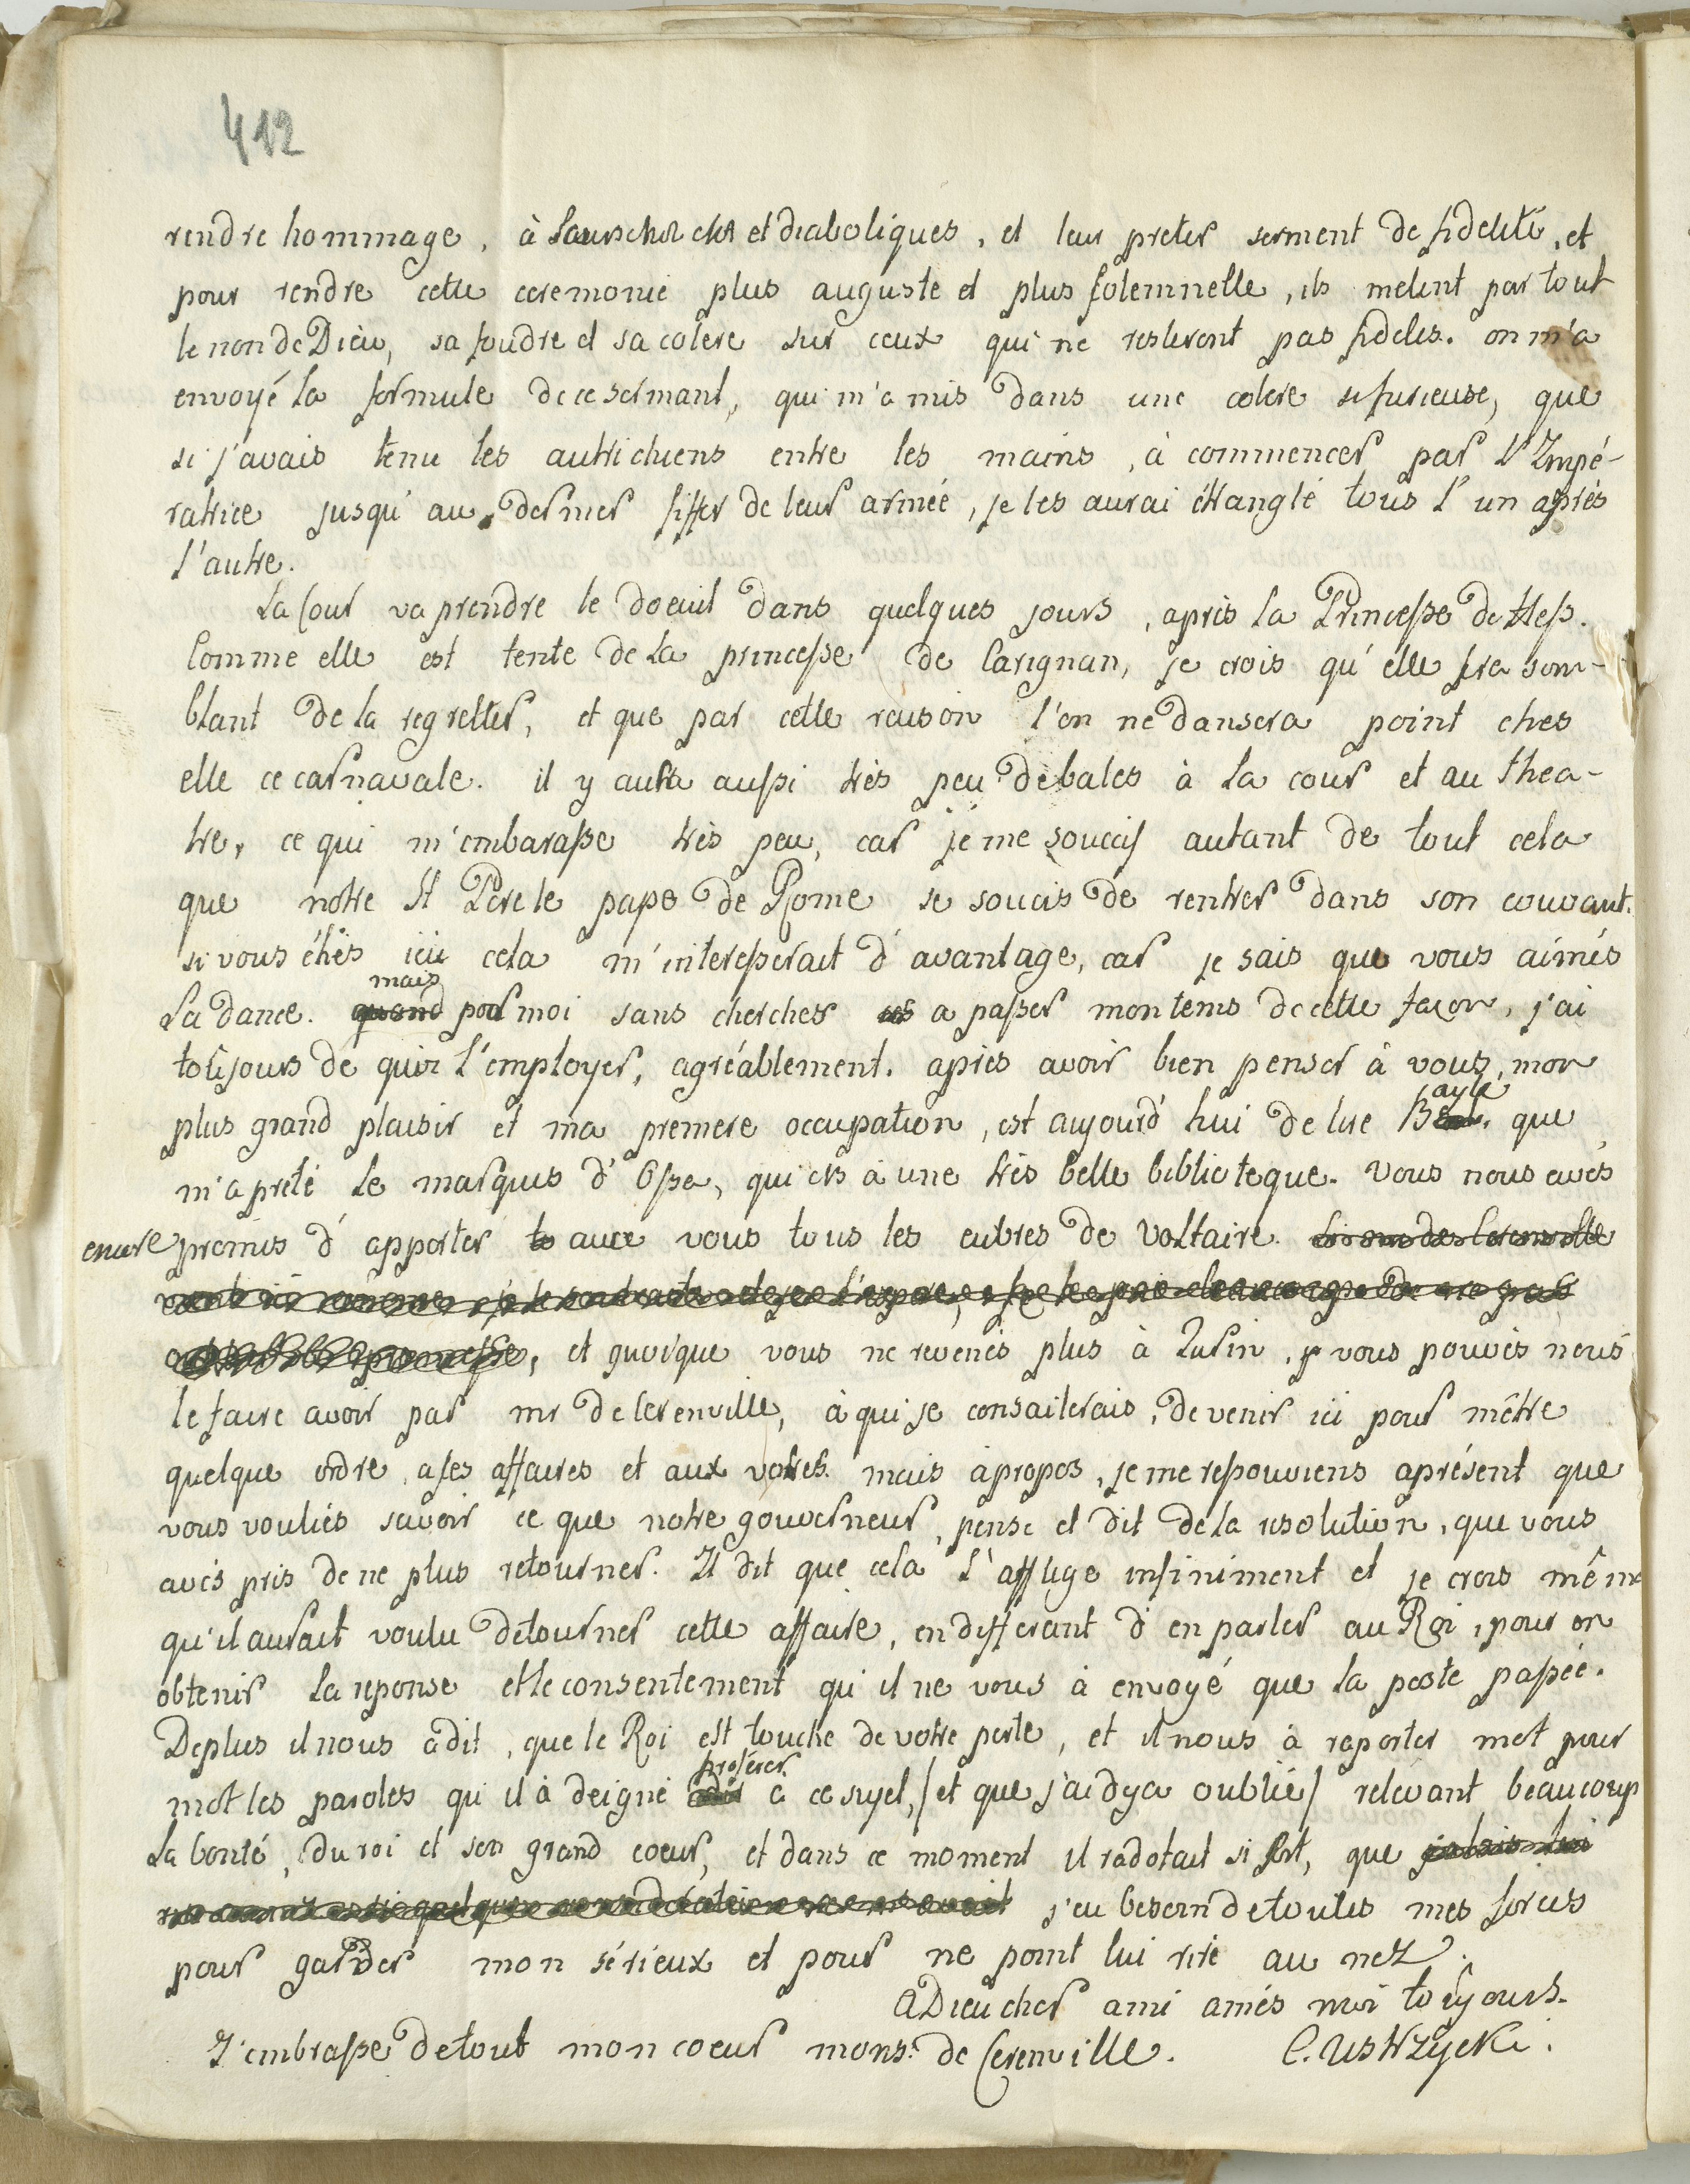 412
rendre hommage, à et diaboliques, et leur preter serment de fidelité, et
pour rendre cette ceremonie plus auguste et plus solemnelle, ils melent par tout
le non de Dieu, sa foudre et sa colere sur ceux qui ne resteront pas fideles. on m'a
envoyé la formule de ce sermant, qui m'a mis dans une colere si furieuse, que
si j'avais tenu les autrichiens entre les mains, à commencer par l'Impé-
ratrice jusqu'au dernier fiffer de leur armée, je les aurai étranglé tous l'un après
l'autre.
La Cour va prendre le doeuil dans quelques jours, après la Princesse de Hess.
Comme elle est tente de la princesse de Carignan, je crois qu'elle fera som-
blant de la regretter, et que par cette raison l'on ne dansera point ches
elle ce carnavale. il y aura aussi très peu de bales à la cour et au thea-
tre, ce qui m'embarasse très peu, car je me soucis autant de tout cela
que notre St Pere le pape de Rome se soucis de rentrer dans son couvant.
si vous étiés ici cela m'interesserait d'avantage, car je sais que vous aimés
la dance. quand mais pour moi sans chercher a passer mon tems de cette façon, j'ai
toujours de quoi l'employer, agréablement. apries avoir bien penser à vous, mon
plus grand plaisir et ma premiere occupation, est aujourd'hui de lire Bayle que
m'a preté le marquis d'Ossa, qui à une très belle biblioteque. Vous nous avés
encore promis d'apporter avec vous tous les eubres de Voltaire.
et quoique vous ne revenés plus à Turin, vous pouvés nous
le faire avoir par mr de Cerenville, à qui je consailerais, de venir ici pour mêtre
quelque ordre a ses affaires et aux votres. mais apropos, je me ressouviens aprésent que
vous vouliés savoir ce que notre gouverneur, pense et dit de la resolution, que vous
avés pris de ne plus retourner. Il dit que cela l'afflige infiniment et je crois même
qu'il aurait voulu detourner cette affaire, en differant d'en parler au Roi, pour en
obtenir la reponse et le consentement qu'il ne vous à envoyé que la poste passée.
De plus il nous a dit, que le Roi est touche de votre perte, et il nous à raporter mot pour
mot les paroles qu'il à deigné proférer à ce sujet, (et que j'ai deja oublié) relevant beaucoup
la bonté, du roi et son grand coeur, et dans ce moment il radotait si fort, que
j'eu besoin de toutes mes forces
pour garder mon sérieux et pour ne point lui rire au nez.
aDieu cher ami amés moi toujours.
J'embrasse de tout mon coeur mons. de Cerenville. C. Ustrzycki.